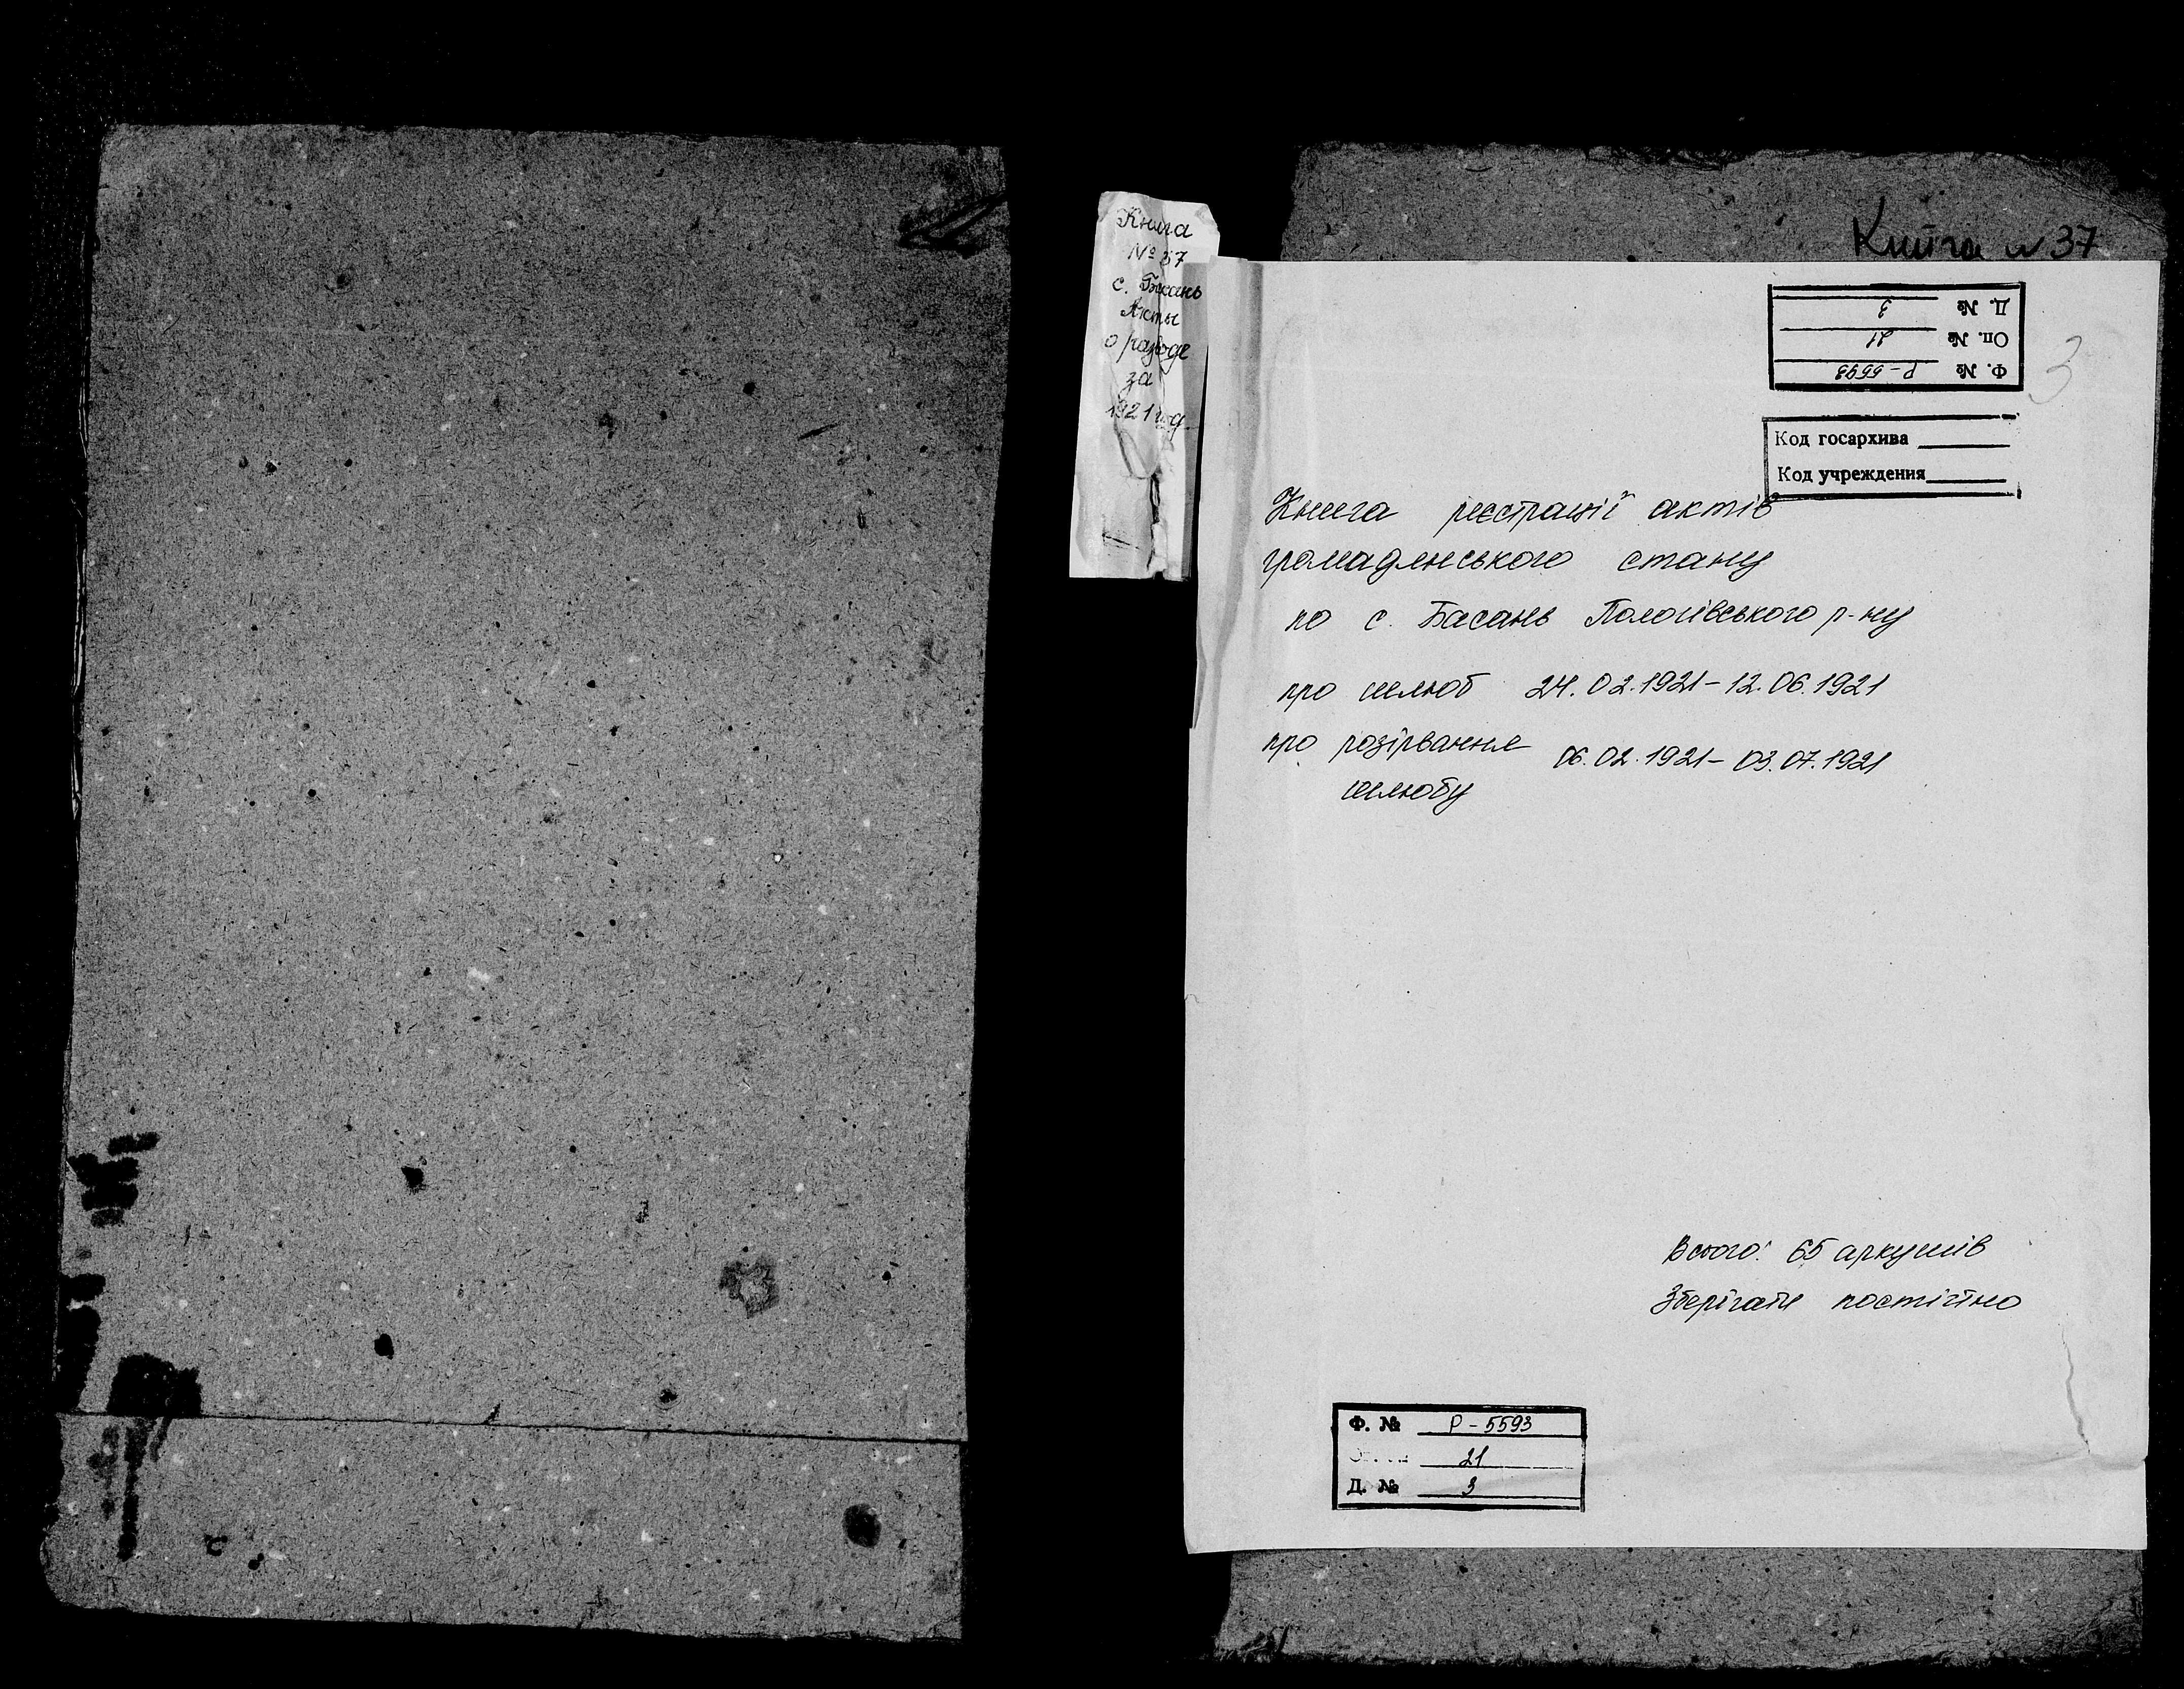 Книга
№ 37
с. Басань
Акты
о разводе
за
1921 год
Книга № 37
Д. № 3
Оп. № 21
Ф. № Р-5593
3
Код госархива
Код учреждения
Книга реєстрації актів
громадянського стану
по с. Басань Пологівського р-ну
про шлюб 24.02.1921-12.06.1921
про розірвання 06.02.1921-03.07.1921
шлюбу
Всього: 65 аркушів
Зберігати постійно
Ф. № Р-5593
21
Д. № 3